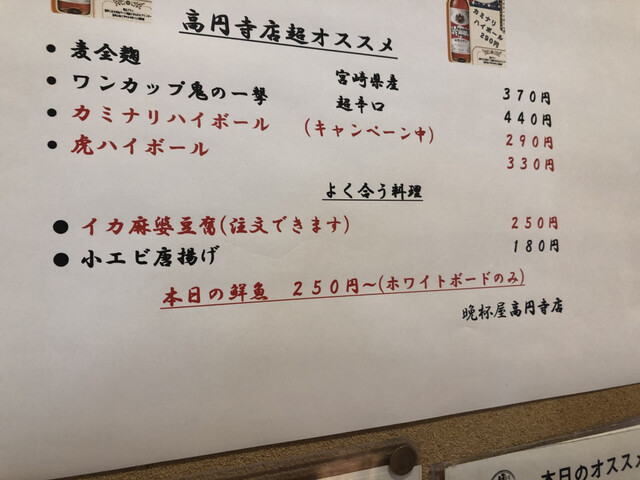 カミナリ
ハイボール
290円
高円寺店超オススメ
・麦全麹 宮崎県産 370円
・ワンカップ鬼の一撃 超辛口 440円
・カミナリハイボール (キャンペーン中) 290円
・虎ハイボール 330円
よく合う料理
●イカ麻婆豆腐(注文できます) 250円
●小エビ唐揚げ 180円
本日の鮮魚 250円~(ホワイトボードのみ)
晩杯屋高円寺店
本日のオススメ